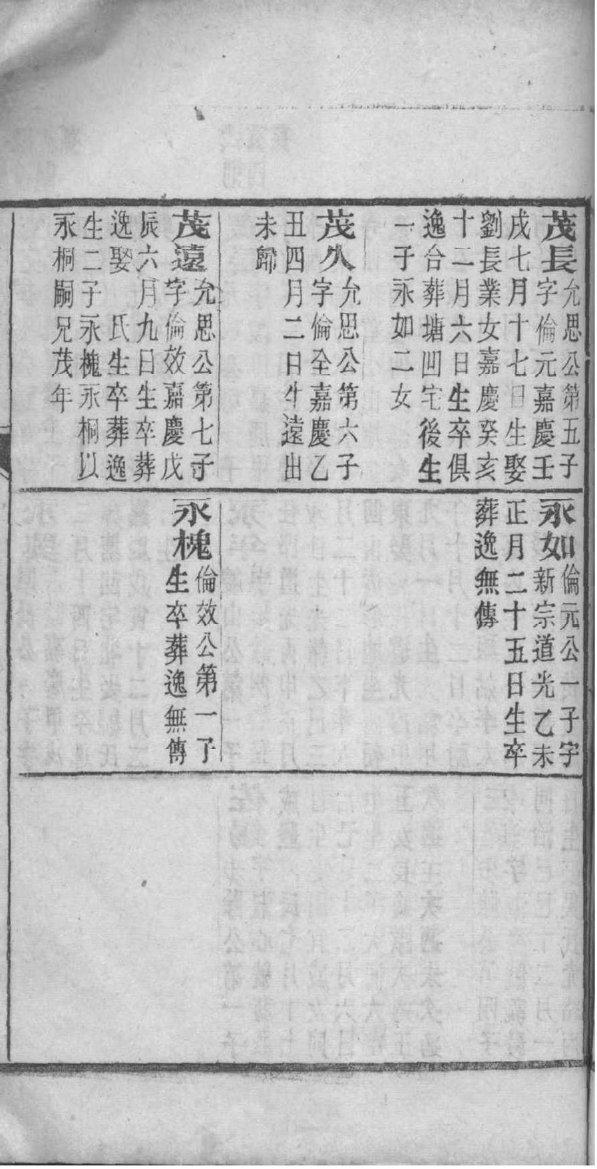 茂長允思公第五子
字倫元嘉慶壬
戌七月十七日生娶
劉長業女嘉慶癸亥
十二月六日生卒俱
逸合葬塘凹宅後生
一子永如二女
茂久允思公第六子
字倫全嘉慶乙
丑四月二日生遠出
未歸
茂遠允思公第七子
字倫效嘉慶戊
辰六月九日生卒葬
逸娶　氏生卒葬逸
生二子永槐永桐以
永桐嗣兄茂年
永如倫元公一子字
新宗道光乙未
正月二十五日生卒
葬逸無傳
永槐倫效公第一子
生卒葬逸無傳